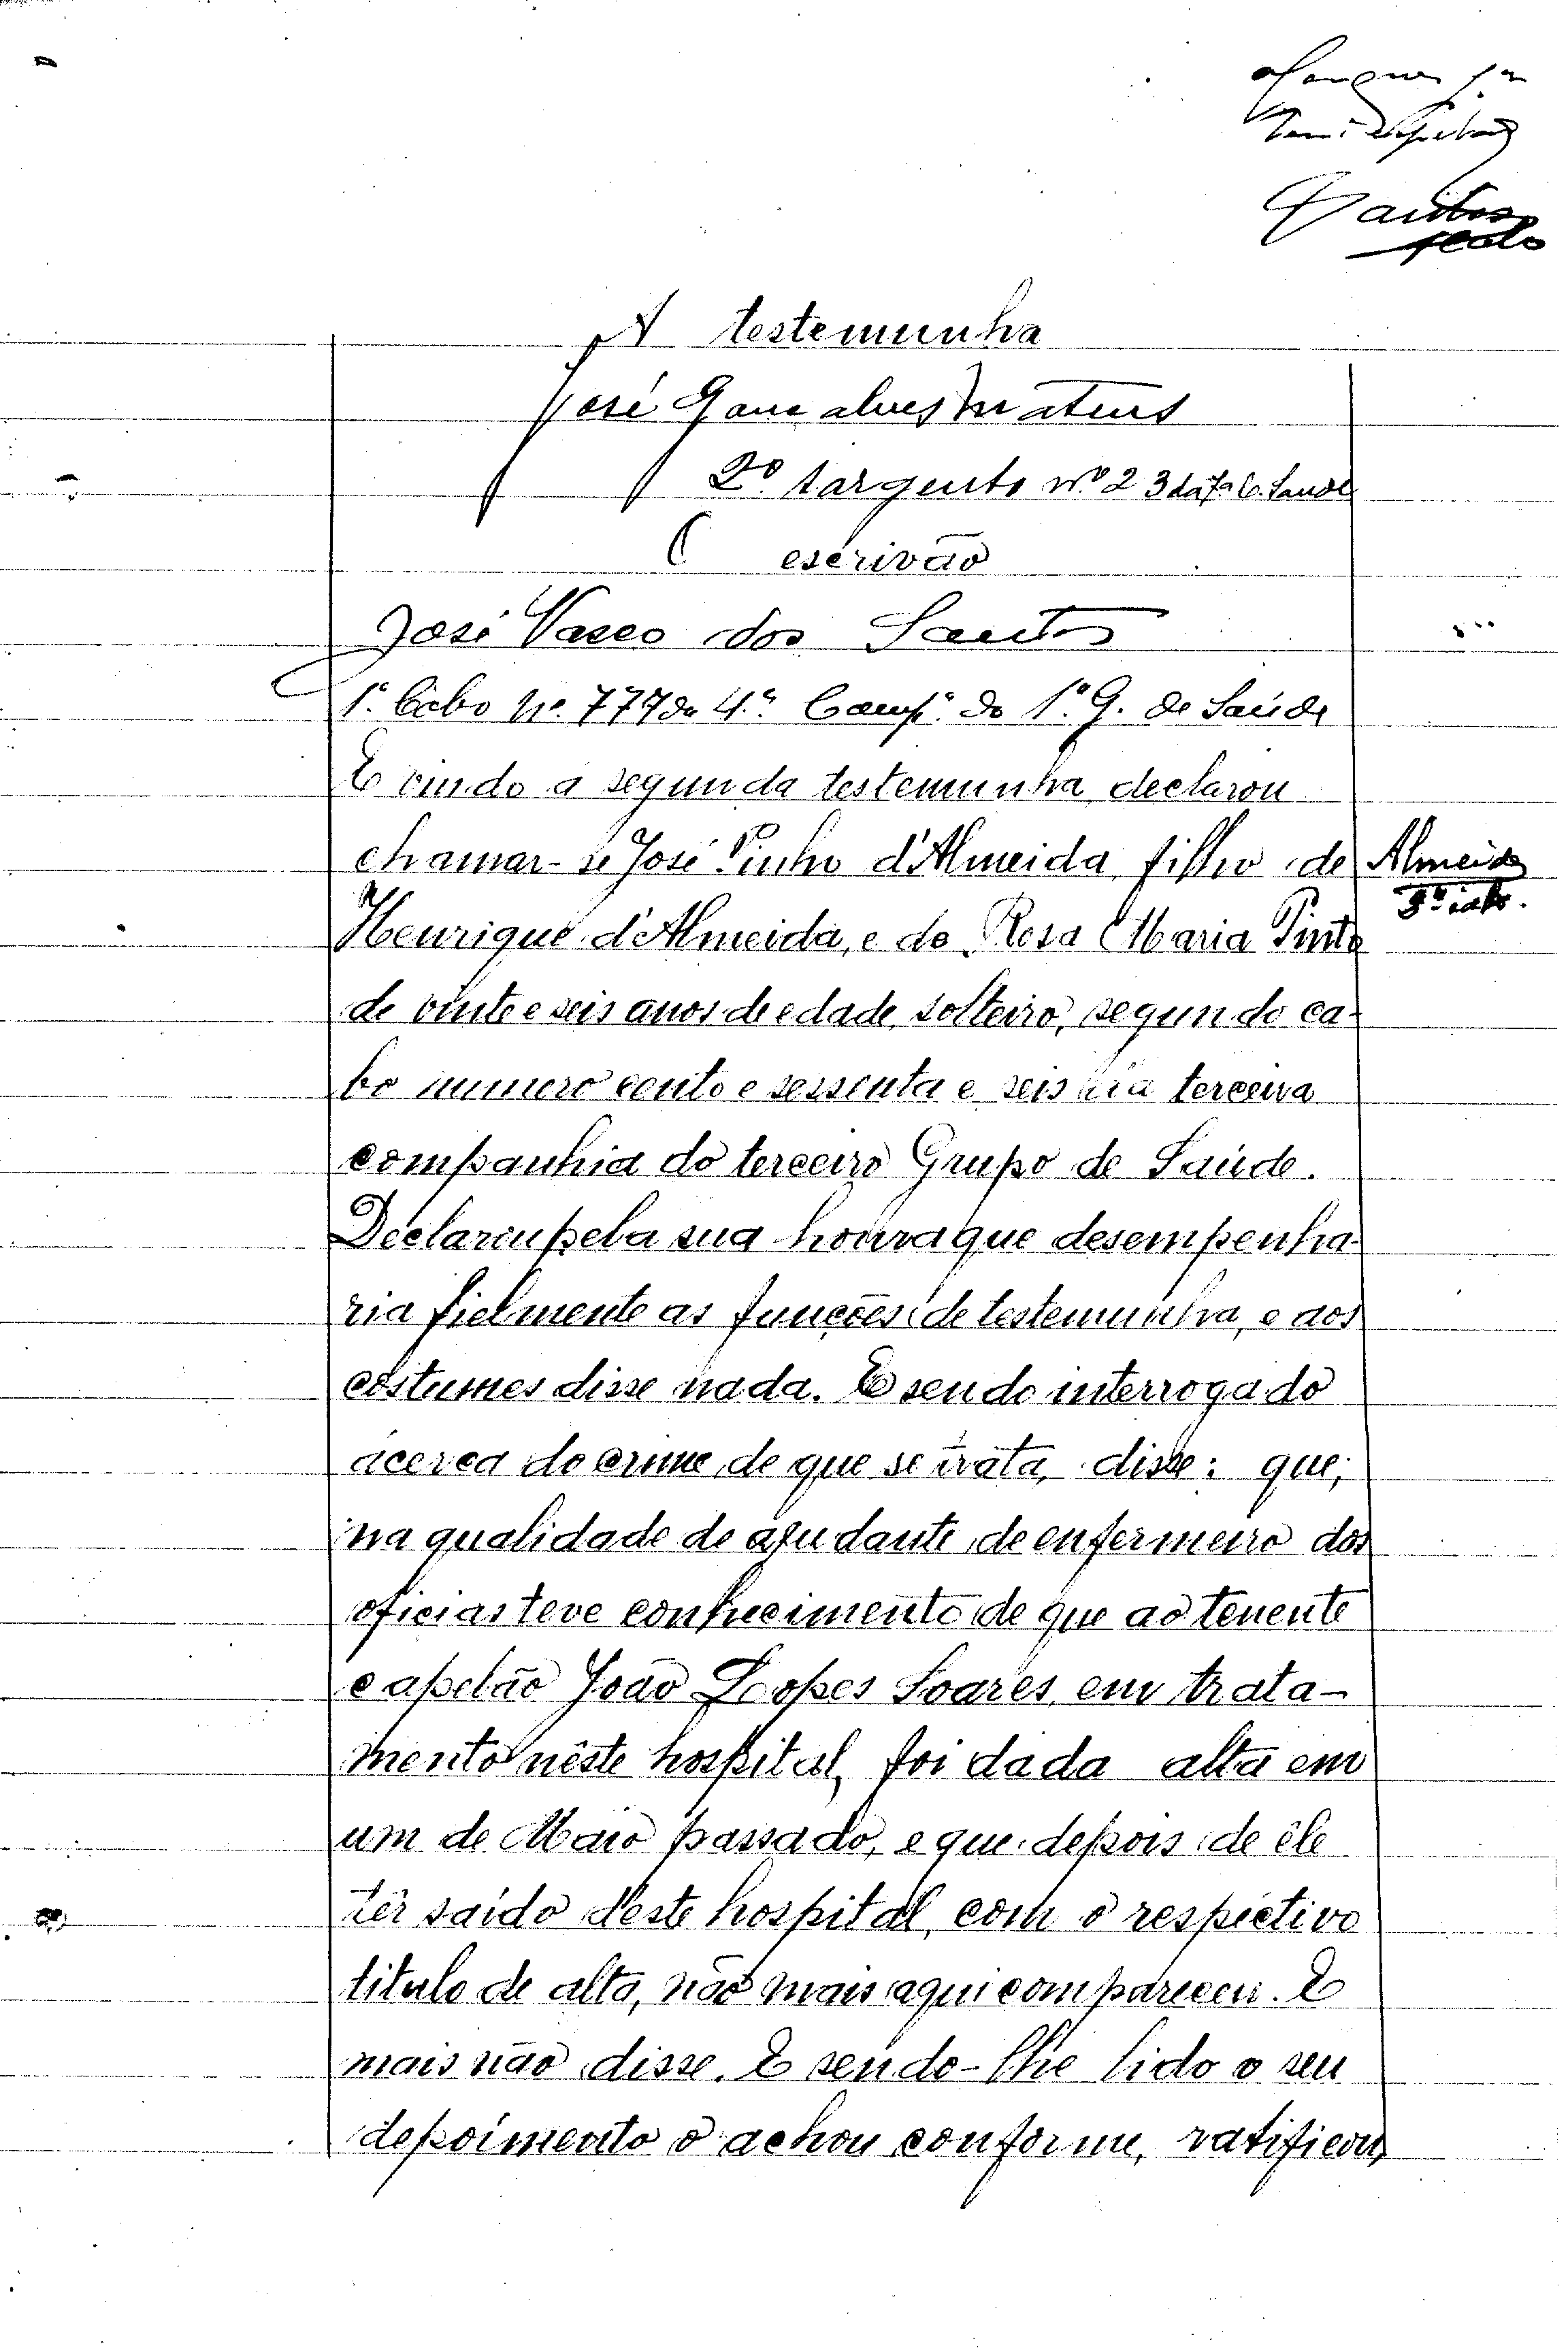 Santos
A testemunha
José Goncalves Mateus
2º sargento nº 23 da 7ª C. Saude
O escrivão
José Vasco dos Santos
1º Cabo Nº 777 da 4ª Comp.ª do 1º G. de Saúde
E vindo a segunda testemunha declarou
chamar-se José Pinho d'Almeida filho de
Almeida
Henrique d'Almeida, e de Rosa Maria Pinto
de vinte e seis anos de edade, solteiro, segundo ca-
bo numero cento e sessenta e seis da terceira
companhia do terceiro Grupo de Saúde.
Declarou pela sua honra que desempenha-
ria fielmente as funções de testemunha, e aos
costumes disse nada. E sendo interrogado
ácerca do crime de que se trata, disse: que,
na qualidade de ajudante de enfermeiro dos
oficiais teve conhecimento de que ao tenente
capelão João Lopes Soares, em trata-
mento nêste hospital, foi dada alta em
um de Maio passado, e que depois de êle
têr saído deste hospital, com o respectivo
titulo de alta, não mais aqui compareceu. E
mais não disse. E sendo-lhe lido o seu
depoimento o achou conforme, ratificou,